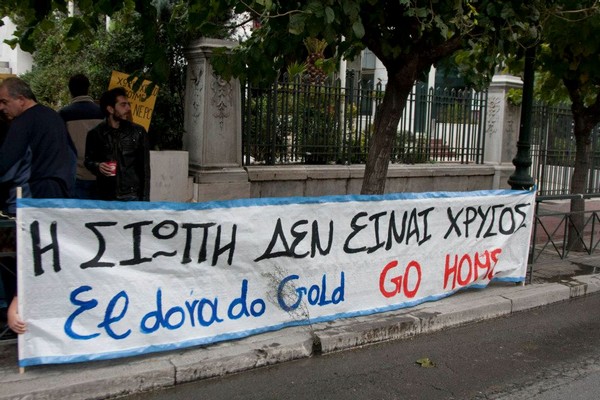 Η ΣΙΩΠΗ ΔΕΝ ΕΙΝΑΙ ΧΡΥΣΟΣ
Eldorado Gold GO HOME